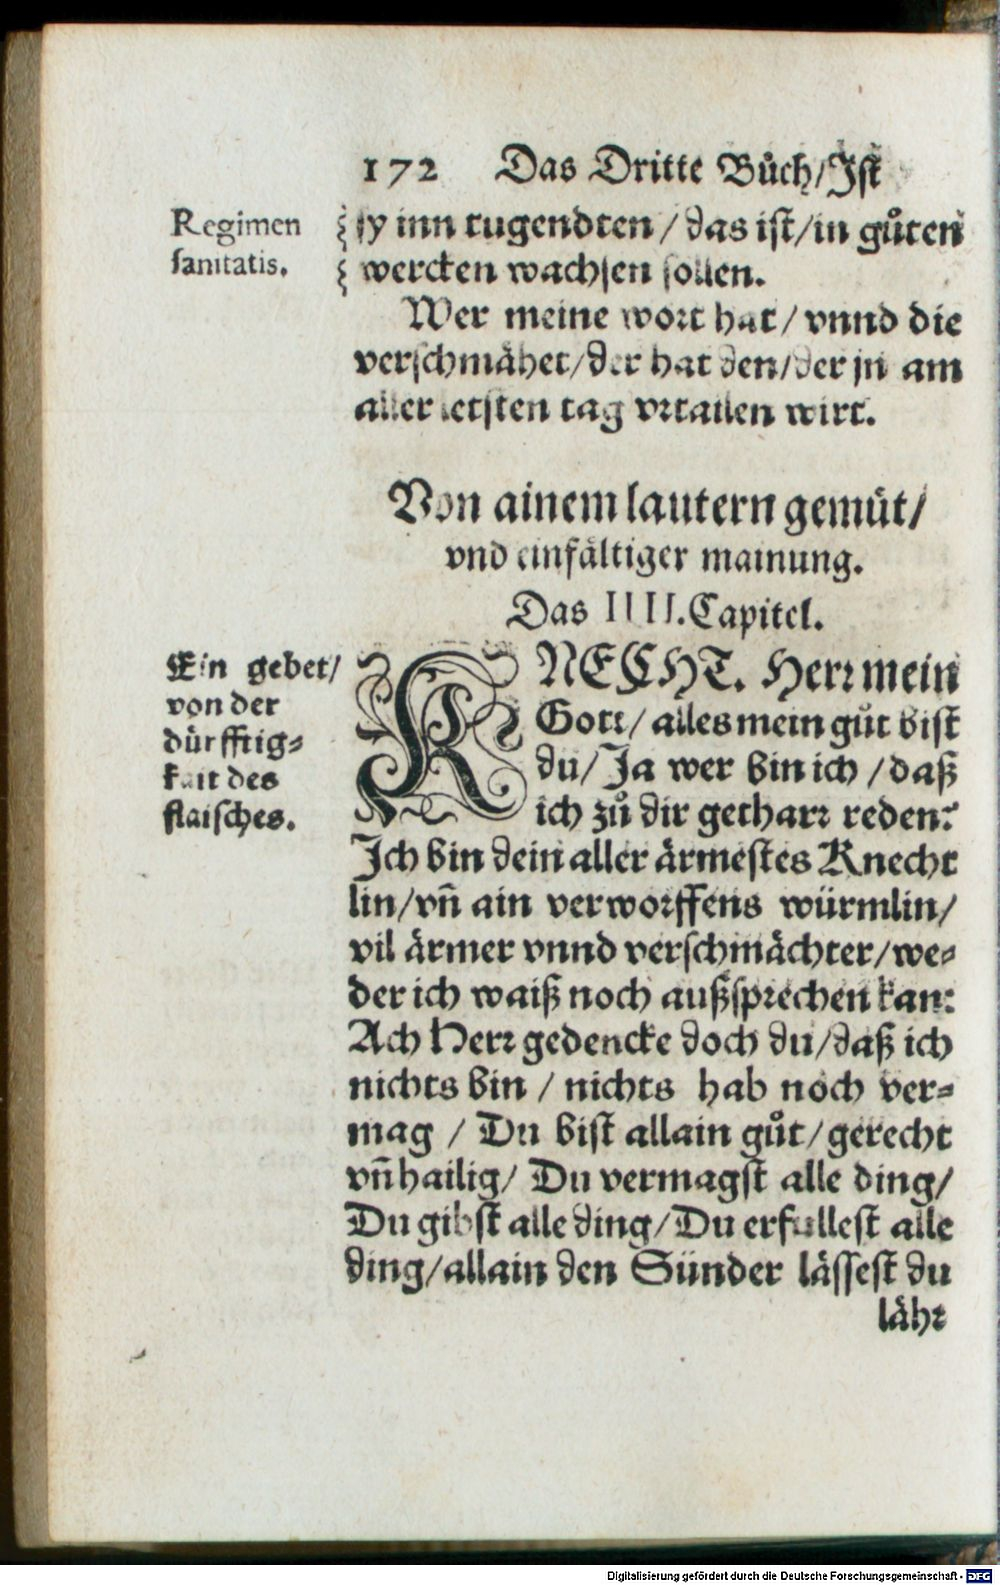 172 Das Dritte Bůch/Ist
Regimen
sanitatis.
sy inn tugendten/das ist/in gůten
wercken wachsen sollen.
Wer meine wort hat/vnnd die
verschmähet/der hat den/der jn am
aller letsten tag vrtailen wirt.
Von ainem lautern gemüt/
vnd einfältiger mainung.
Das IIII. Capitel.
Ein gebet/
von der
dürfftig-
kait des
flaisches.
KNECHT. Herr mein
Gott/alles mein gůt bist
du/Ja wer bin ich/daß
ich zů dir getharr reden?
Ich bin dein aller ärmestes Knecht
lin/vn̄ ain verworffens würmlin/
vil ärmer vnnd verschmächter/we-
der ich waiß noch außsprechen kan:
Ach Herr gedencke doch du/daß ich
nichts bin/nichts hab noch ver-
mag/Du bist allain gůt/gerecht
vn̄ hailig/Du vermagst alle ding/
Du gibst alle ding/Du erfüllest alle
ding/allain den Sünder lässest du
lähr
Digitalisierung gefördert durch die Deutsche Forschungsgemeinschaft - DFG